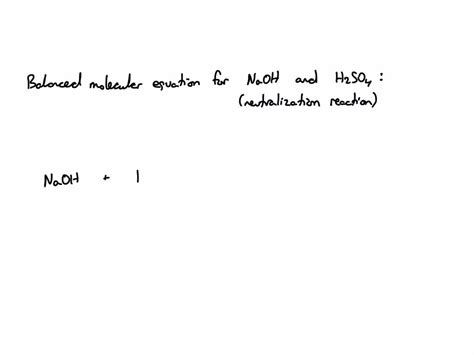 Balanced molecular equation for NaOH and H2SO4 :
(neutralization reaction)
NaOH + |